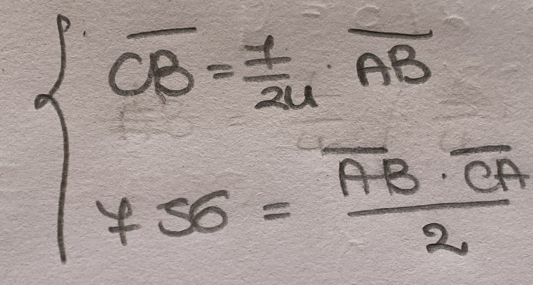 CB = 7/24 · AB
756 = AB · CA / 2